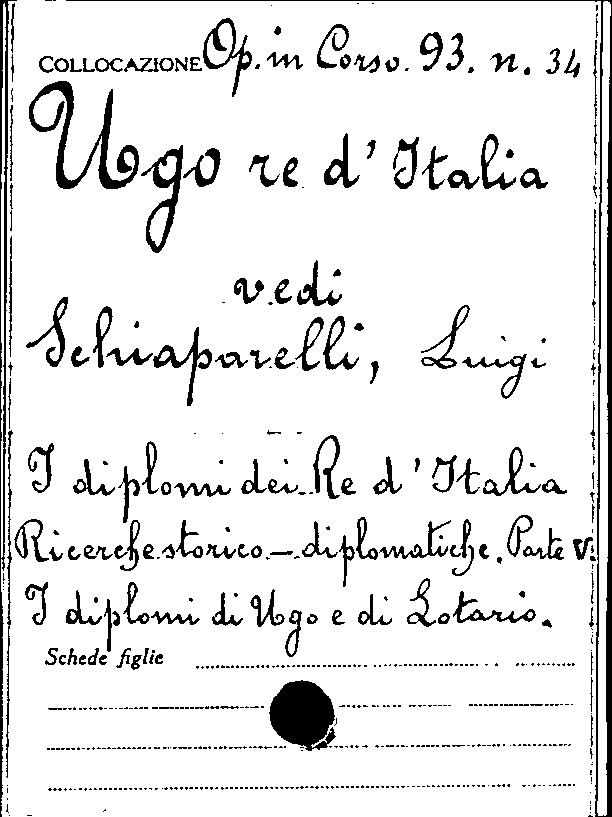 COLLOCAZIONE Op. in Corso. 93. n. 34
Ugo re d'Italia
vedi
Schiaparelli, Luigi
I diplomi dei Re d'Italia
Ricerche storico-diplomatiche. Parte V.
I diplomi di Ugo e di Lotario.
Schede figlie